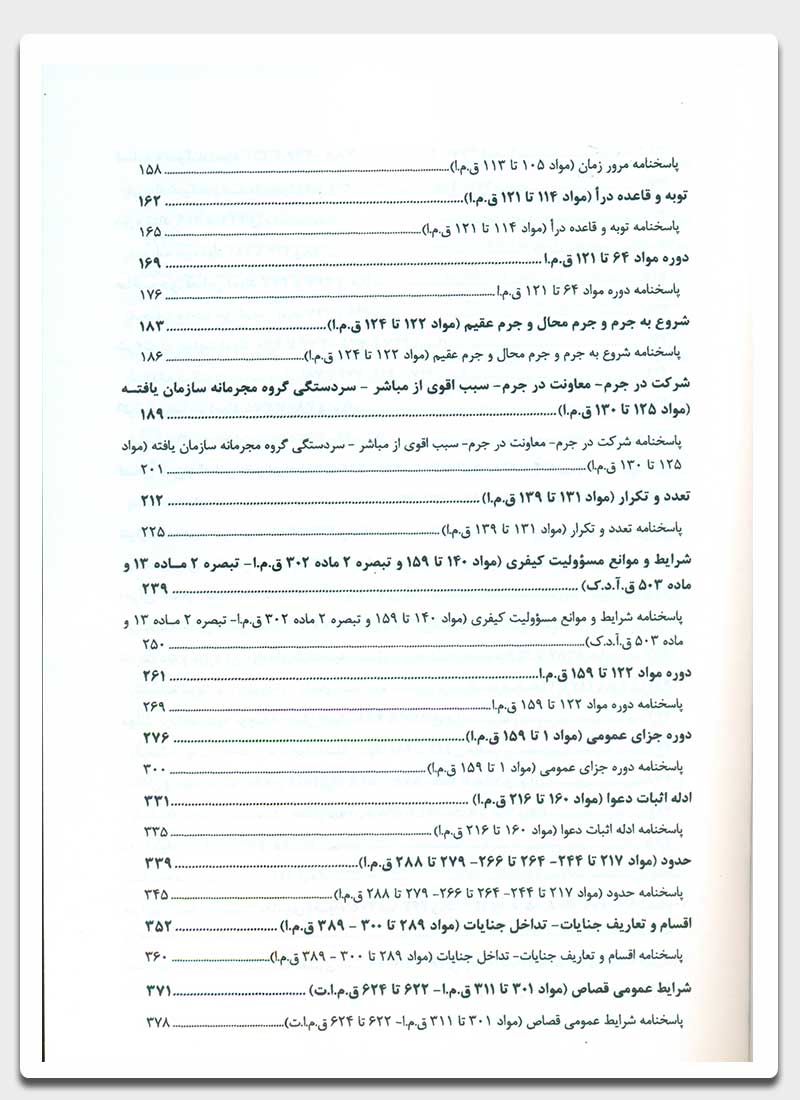 پاسخنامه مرور زمان (مواد ۱۰۵ تا ۱۱۳ ق.م.ا) ۱۵۸
توبه و قاعده درأ (مواد ۱۱۴ تا ۱۲۱ ق.م.ا) ۱۶۲
پاسخنامه توبه و قاعده درأ (مواد ۱۱۴ تا ۱۲۱ ق.م.ا) ۱۶۵
دوره مواد ۶۴ تا ۱۲۱ ق.م.ا ۱۶۹
پاسخنامه دوره مواد ۶۴ تا ۱۲۱ ق.م.ا ۱۷۶
شروع به جرم و جرم محال و جرم عقیم (مواد ۱۲۲ تا ۱۲۴ ق.م.ا) ۱۸۳
پاسخنامه شروع به جرم و جرم محال و جرم عقیم (مواد ۱۲۲ تا ۱۲۴ ق.م.ا) ۱۸۶
شرکت در جرم- معاونت در جرم- سبب اقوی از مباشر - سردستگی گروه مجرمانه سازمان یافته
(مواد ۱۲۵ تا ۱۳۰ ق.م.ا) ۱۸۹
پاسخنامه شرکت در جرم- معاونت در جرم- سبب اقوی از مباشر - سردستگی گروه مجرمانه سازمان یافته (مواد
۱۲۵ تا ۱۳۰ ق.م.ا) ۲۰۱
تعدد و تکرار (مواد ۱۳۱ تا ۱۳۹ ق.م.ا) ۲۱۲
پاسخنامه تعدد و تکرار (مواد ۱۳۱ تا ۱۳۹ ق.م.ا) ۲۲۵
شرایط و موانع مسؤولیت کیفری (مواد ۱۴۰ تا ۱۵۹ و تبصره ۲ ماده ۳۰۲ ق.م.ا- تبصره ۲ ماده ۱۳ و
ماده ۵۰۳ ق.آ.د.ک) ۲۳۹
پاسخنامه شرایط و موانع مسؤولیت کیفری (مواد ۱۴۰ تا ۱۵۹ و تبصره ۲ ماده ۳۰۲ ق.م.ا- تبصره ۲ ماده ۱۳ و
ماده ۵۰۳ ق.آ.د.ک) ۲۵۰
دوره مواد ۱۲۲ تا ۱۵۹ ق.م.ا ۲۶۱
پاسخنامه دوره مواد ۱۲۲ تا ۱۵۹ ق.م.ا ۲۶۹
دوره جزای عمومی (مواد ۱ تا ۱۵۹ ق.م.ا) ۲۷۶
پاسخنامه دوره جزای عمومی (مواد ۱ تا ۱۵۹ ق.م.ا) ۳۰۰
ادله اثبات دعوا (مواد ۱۶۰ تا ۲۱۶ ق.م.ا) ۳۳۱
پاسخنامه ادله اثبات دعوا (مواد ۱۶۰ تا ۲۱۶ ق.م.ا) ۳۳۵
حدود (مواد ۲۱۷ تا ۲۴۴- ۲۶۴ تا ۲۶۶- ۲۷۹ تا ۲۸۸ ق.م.ا) ۳۳۹
پاسخنامه حدود (مواد ۲۱۷ تا ۲۴۴- ۲۶۴ تا ۲۶۶- ۲۷۹ تا ۲۸۸ ق.م.ا) ۳۴۵
اقسام و تعاریف جنایات- تداخل جنایات (مواد ۲۸۹ تا ۳۰۰ - ۳۸۹ ق.م.ا) ۳۵۲
پاسخنامه اقسام و تعاریف جنایات- تداخل جنایات (مواد ۲۸۹ تا ۳۰۰ - ۳۸۹ ق.م.ا) ۳۶۰
شرایط عمومی قصاص (مواد ۳۰۱ تا ۳۱۱ ق.م.ا- ۶۲۲ تا ۶۲۴ ق.م.ا.ت) ۳۷۱
پاسخنامه شرایط عمومی قصاص (مواد ۳۰۱ تا ۳۱۱ ق.م.ا- ۶۲۲ تا ۶۲۴ ق.م.ا.ت) ۳۷۸